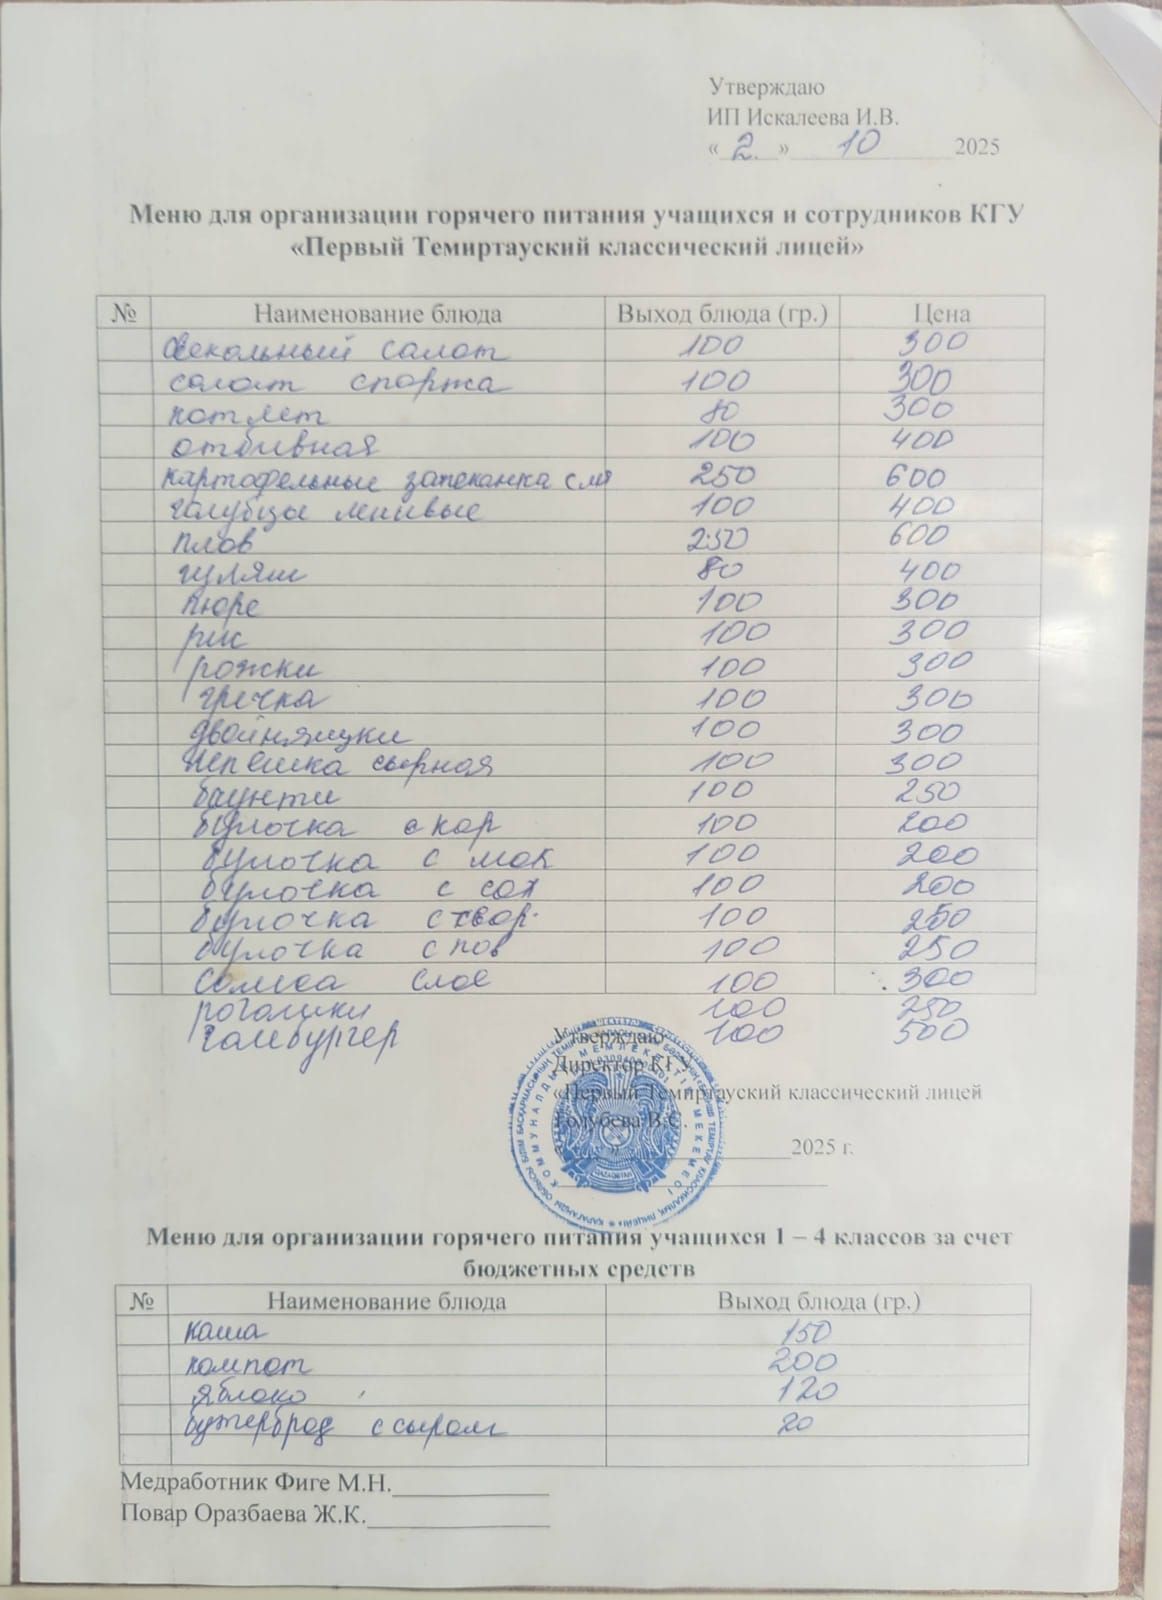 Утверждаю
ИП Искалеева И.В.
« 2. » 10 2025
Меню для организации горячего питания учащихся и сотрудников КГУ
«Первый Темиртауский классический лицей»
№ Наименование блюда Выход блюда (гр.) Цена
Свекольный салат 100 300
салат спаржа 100 300
котлет 80 300
отбивная 100 400
картофельные запеканка с мя 250 600
голубцы ленивые 100 400
плов 250 600
гуляш 80 400
пюре 100 300
рис 100 300
рожки 100 300
гречка 100 300
двойняшки 100 300
лепешка сырная 100 300
баунти 100 250
булочка с кор 100 200
булочка с мак 100 200
булочка с сах 100 200
булочка с твор. 100 250
булочка с пов 100 250
Самса слое 100 300
рогалики 100 250
гамбургер 100 500
Утверждаю
Директор КГУ
«Первый Темиртауский классический лицей
Голубева В.С.
2025 г.
Меню для организации горячего питания учащихся 1 – 4 классов за счет
бюджетных средств
№ Наименование блюда Выход блюда (гр.)
каша 150
компот 200
яблоко 120
бутерброд с сыром 20
Медработник Фиге М.Н.
Повар Оразбаева Ж.К.